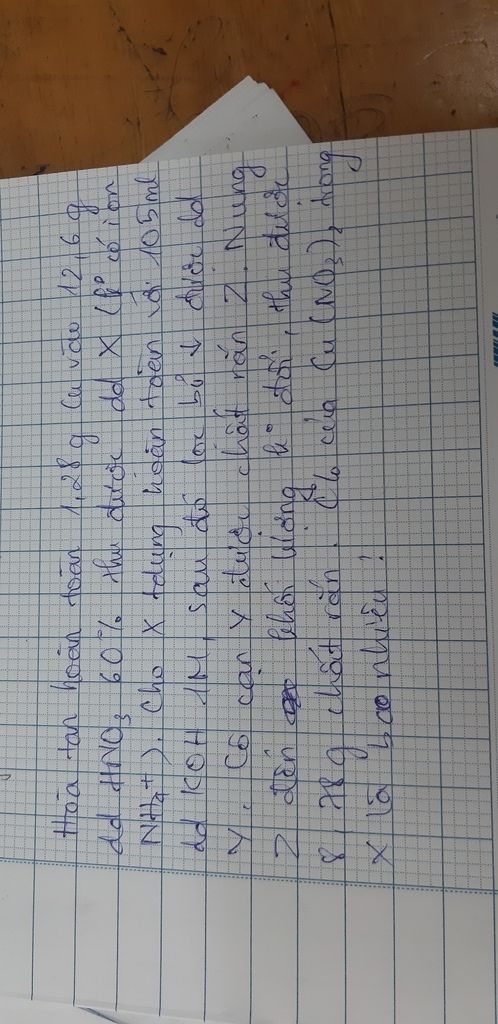 Hòa tan hoàn toàn 1,28 g Cu vào 12,6 g
dd HNO3 60% thu được dd X (ko có ion
NH4+). Cho X tdụng hoàn toàn với 105ml
dd KOH 1M, sau đó lọc bỏ ↓ được dd
Y. Cô cạn Y được chất rắn Z. Nung
Z đến khối lượng ko đổi, thu được
8,78 g chất rắn. C% của Cu(NO3)2 trong
X là bao nhiêu?